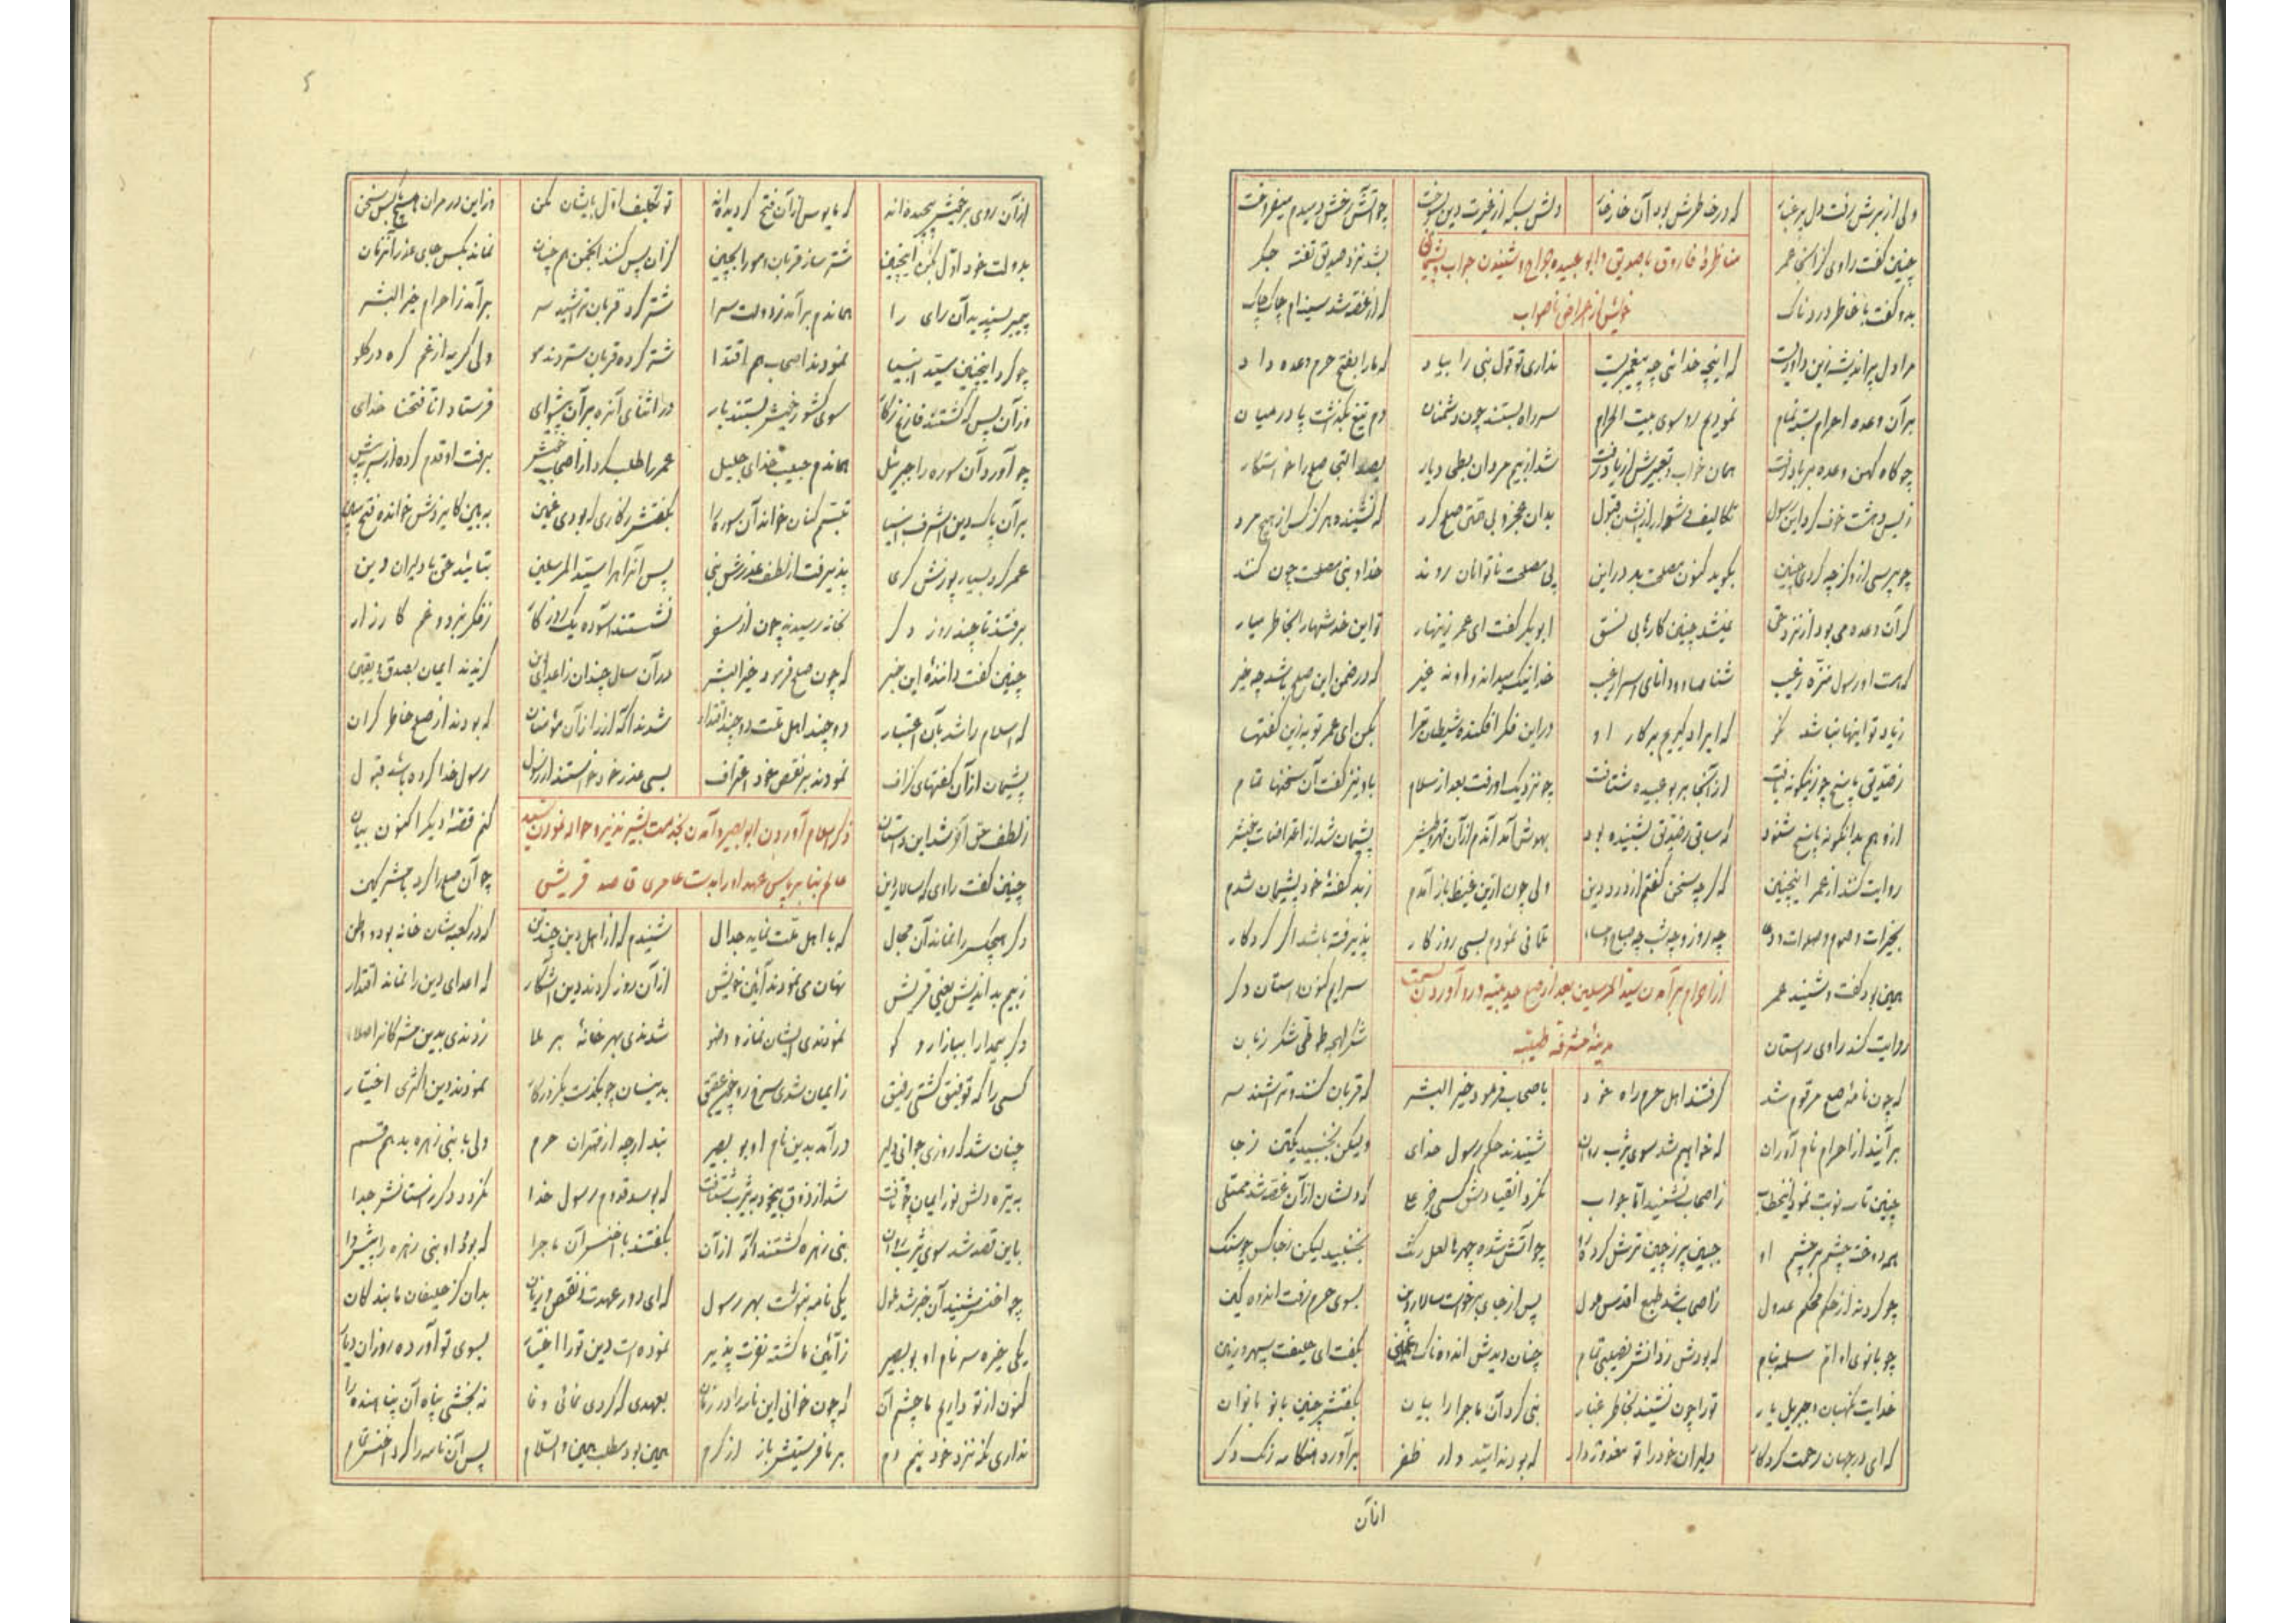 ولی از برش رفت دل پر غبار که در خاطرش بود آن خار خار دلش بسکه از غیرت دین بسوخت چو آتش رخش دمبدم میفروخت
مناظرهٔ فاروق با صدیق و ابو عبیده جراح و شنیدن جواب و پشیمانی
خویش از اعتراض ناصواب
چنین گفت راوی کز آنجا عمر بشد نزد صدیق تفته جگر
بدو گفت با خاطر دردناک که از غصه شد سینه‌ام چاک چاک
مرا دل پر اندیشه زین داوریست که اینچه خدائی چه پیغمبریست نداری تو قول نبی را بیاد که ما را بفتح حرم وعده داد
بر آن وعده احرام بستیم تمام نمودیم رو سوی بیت الحرام سر راه بستند چون دشمنان دم تیغ بگذشت پا در میان
چو کاه کهن وعده بر باد رفت همان خواب و تعبیرش از یاد رفت شد از بیم مردان بطحی دیار بصد التجا صلح را خواستگار
ز بس دهشت و خوف کرد این رسول تکالیف دشوار از ایشان قبول بدان عجز و بی صلح کرد که نشنیده هرگز کس از هیچ مرد
چو پرسی ازو کز چه کردی چنین بگوید کنون مصلحت بد در این پی مصلحت ناتوانان روند خدا و نبی مصلحت چون کنند
گر آن وعده می بود از نزد حق نمیشد چنین کارها بی نسق ابوبکر گفت ای عمر زینهار تو این خدشها را بخاطر میار
که هست او رسول منزه ز عیب شناسا و دانای اسرار غیب خدا نیک میداند و او نه غیر که در ضمن این صلح باشد چه خیر
زیاد تو اینها نباشد مگر که ایراد گیریم بر کار او در این فکر افکنده شیطان ترا بکن ای عمر توبه زین گفتها
ز صدیق پاسخ چو زینگونه یافت از آنجا بر بو عبیده شتافت چو نزدیک او رفت بعد از سلام باو نیز گفت آن سخنها تمام
ازو هم بدانگونه پاسخ شنود که سابق ز صدیق بشنیده بود بهوش آمد آندم از آن قهر و طیش پشیمان شد از اعتراضات خویش
روایت کنند از عمر اینچنین که گرچه سخن گفتم از درد دین ولی چون ازین غیظ باز آمدم ز بد گفتهٔ خود پشیمان شدم
بخیرات و صوم و صلوات و دعا چه روز و چه شب چه صباح و مسا تلافی نمودم بسی روزگار پذیرفته باشد اگر کردگار
از احرام برآمدن سید المرسلین بعد از صلح حدیبیه و رو آوردن بسمت
مدینه مشرفه طیبه
همین بود گفت و شنید عمر سرایم کنون داستان دگر
روایت کند راوی راستان شکر لهجه طوطی شکر زبان
که چون نامهٔ صلح مرقوم شد گرفتند اهل حرم راه خود باصحاب فرمود خیر البشر که قربان کنند و تراشند سر
برآیند از احرام نام آوران که خواهیم شد سوی یثرب روان شنیدند حکم رسول خدای ولیکن نجنبید یکتن ز جا
چنین تا سه نوبت نمود اینخطاب ز اصحاب نشنید اما جواب نکرد انقیادش کسی جز علی که دلشان از آن غصه شد ممتلی
همه دوخته چشم بر چشم او جبین پر ز چین ترش کرده رو چو آتش شده چهرها لعل رنگ نجنبید لیکن ز جا کس چو سنگ
چو کردند از حکم محکم عدول ز اصحاب شد طبع اقدس ملول پس از جای برخاست سالار دین بسوی حرم رفت اندوهگین
چو بانوی او ام سلمه بنام که بودش ز دانش نصیبی تمام چنان دیدش اندوهناک و غمین بگفت ای خلیفت سپهر و زمین
خدایت نگهبان و جبریل یار ترا چون نشیند بخاطر غبار نبی کرد آن ماجرا را بیان بگفتش چنین بانو بانوان
که ای در جهان رحمت کردگار دلیران خود را تو معذور دار که بودند امیدوار ظفر برآورد هنگامه رنگ دگر
از آن
از آن روی بر خویش پیچیده‌اند که مایوس از آن فتح گردیده‌اند تو تکلیف اول بایشان مکن وز این در مران هیچ با کس سخن
بدولت خود اول بکن اینچنین شتر ساز قربان و مو را بچین کز آن پس کنند انجمن هم چنان نماند بکس جای عذر آنزمان
پیمبر پسندید آن رای را هماندم برآمد ز دولت سرا شتر کرد قربان تراشید سر برآمد ز احرام خیر البشر
چو کرد اینچنین سید انبیا نمودند اصحاب هم اقتدا شتر کرده قربان ستردند مو ولی گریه از غم گره در گلو
وز آن پس که گشتند فارغ ز کار سوی کشور خویش بستند بار در اثنای آنره بر آن پیشوای فرستاد انا فتحنا خدای
چو آورد آن سوره را جبرئیل هماندم حبیب خدای جلیل عمر را طلب کرد از اصحاب خویش برفت او قدم کرده از سر به پیش
بر آن پاک دین اشرف انبیا تبسم کنان خواند آن سوره را بگفتش ز کاری که بودی غمین به بین کایزدش خوانده فتح مبین
عمر کرد بسیار پوزش گری پذیرفت از لطف عذرش نبی پس آنراهرا سید المرسلین بتائید حق با دلیران دین
برفتند تا چند روز دگر بخانه رسیدند چون از سفر نشستند آسوده یک روزگار ز فکر نبرد و غم کارزار
چنین گفت دانندهٔ این خبر که چون صلح فرمود خیر البشر در آن سال چندان ز اعدای دین گزیدند ایمان بصدق و یقین
که اسلام را شد بآن اعتبار دو چند اهل ملت دو چند اقتدار شدند آگه از راز آن مؤمنان که بودند از صلح خاطر گران
پشیمان از آن گفتهای گزاف نمودند بر نقص خود اعتراف بسی عذر خود خواستند از رسول رسول خدا کرده باشد قبول
ز لطف حق آخر شد این داستان کنم قصهٔ دیگر اکنون بیان
ذکر اسلام آوردن ابو بصیر و آمدن بخدمت بشیر نذیر و حواله نمودن سید
عالم بنا بر پاس عهد او را بدست عامری قاصد قریش
چنین گفت راوی که سالار دین چو آن صلح را کرد با مشرکین
دگر هیچکس را نماند آن مجال که با اهل ملت نماید جدال شنیدم که از اهل دین چند تن که در کعبه‌شان خانه بود و وطن
ز بیم بد اندیش یعنی قریش نهان می نمودند آئین خویش از آن روز کردند دین آشکار که اعدای دین را نماند اقتدار
دگر بیمدارا ببازار و کو نمودندی ایشان نماز و وضو شدندی بهر خانهٔ بر ملا زدندی بدین مشرکانرا صلا
کسی را که توفیق گشتی رفیق ز ایمان شدی سرخ رو چون عقیق بدینسان چو بگذشت یکروزگار نمودند دین اکثری اختیار
چنان شد که روزی جوانی دلیر درآمد بدین نام او بو بصیر بد ارچه از مهتران حرم ولی با بنی زهره بد هم قسم
به تیره دلش نور ایمان چو تافت شد از ذوق بیخود به یثرب شتافت که بوسد قدوم رسول خدا نگردد دگر ز آستانش جدا
باین قصد شد سوی یثرب روان بنی زهره گشتند آگه از آن بگفتند با اخنس آن ماجرا که بود او بنی زهره را پیشوا
چو اخنس شنید آن خبر شد ملول یکی نامه بنوشت بهر رسول که ای دور عهدت ز نقص و زیان بدان کز حلیفان ما بندگان
یکی خیره سر نام او بو بصیر ز آئین ما گشته نفرت پذیر نموده است دین تو را اختیار بسوی تو آورده رو زان دیار
کنون از تو داریم ما چشم آن که چون خوانی این نامه را در زمان بعهدی که کردی نمائی وفا نه بخشی پناه آن پناهنده را
نداری نگه نزد خود نیم دم بر ما فرستیش باز از کرم همین بود مطلب همین والسلام پس آن نامه را کرد اخنس تمام